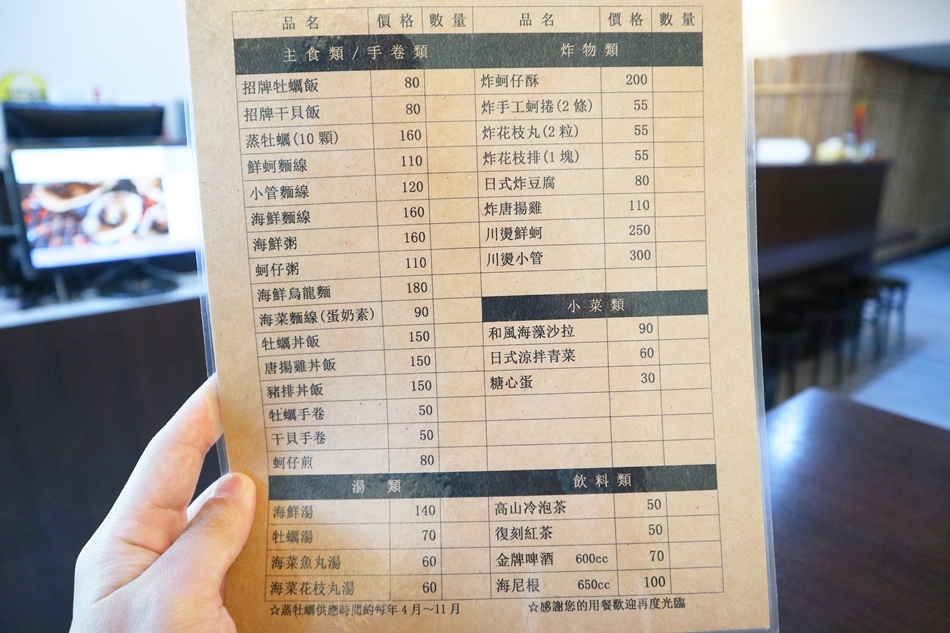 品名 價格 數量 品名 價格 數量
主食類/手卷類
招牌牡蠣飯 80
招牌干貝飯 80
蒸牡蠣(10顆) 160
鮮蚵麵線 110
小管麵線 120
海鮮麵線 160
海鮮粥 160
蚵仔粥 110
海鮮烏龍麵 180
海菜麵線(蛋奶素) 90
牡蠣丼飯 150
唐揚雞丼飯 150
豬排丼飯 150
牡蠣手卷 50
干貝手卷 50
蚵仔煎 80
湯類
海鮮湯 140
牡蠣湯 70
海菜魚丸湯 60
海菜花枝丸湯 60
☆蒸牡蠣供應時間約每年4月~11月
炸物類
炸蚵仔酥 200
炸手工蚵捲(2條) 55
炸花枝丸(2粒) 55
炸花枝排(1塊) 55
日式炸豆腐 80
炸唐揚雞 110
川燙鮮蚵 250
川燙小管 300
小菜類
和風海藻沙拉 90
日式涼拌青菜 60
糖心蛋 30
飲料類
高山冷泡茶 50
復刻紅茶 50
金牌啤酒 600cc 70
海尼根 650cc 100
☆感謝您的用餐歡迎再度光臨